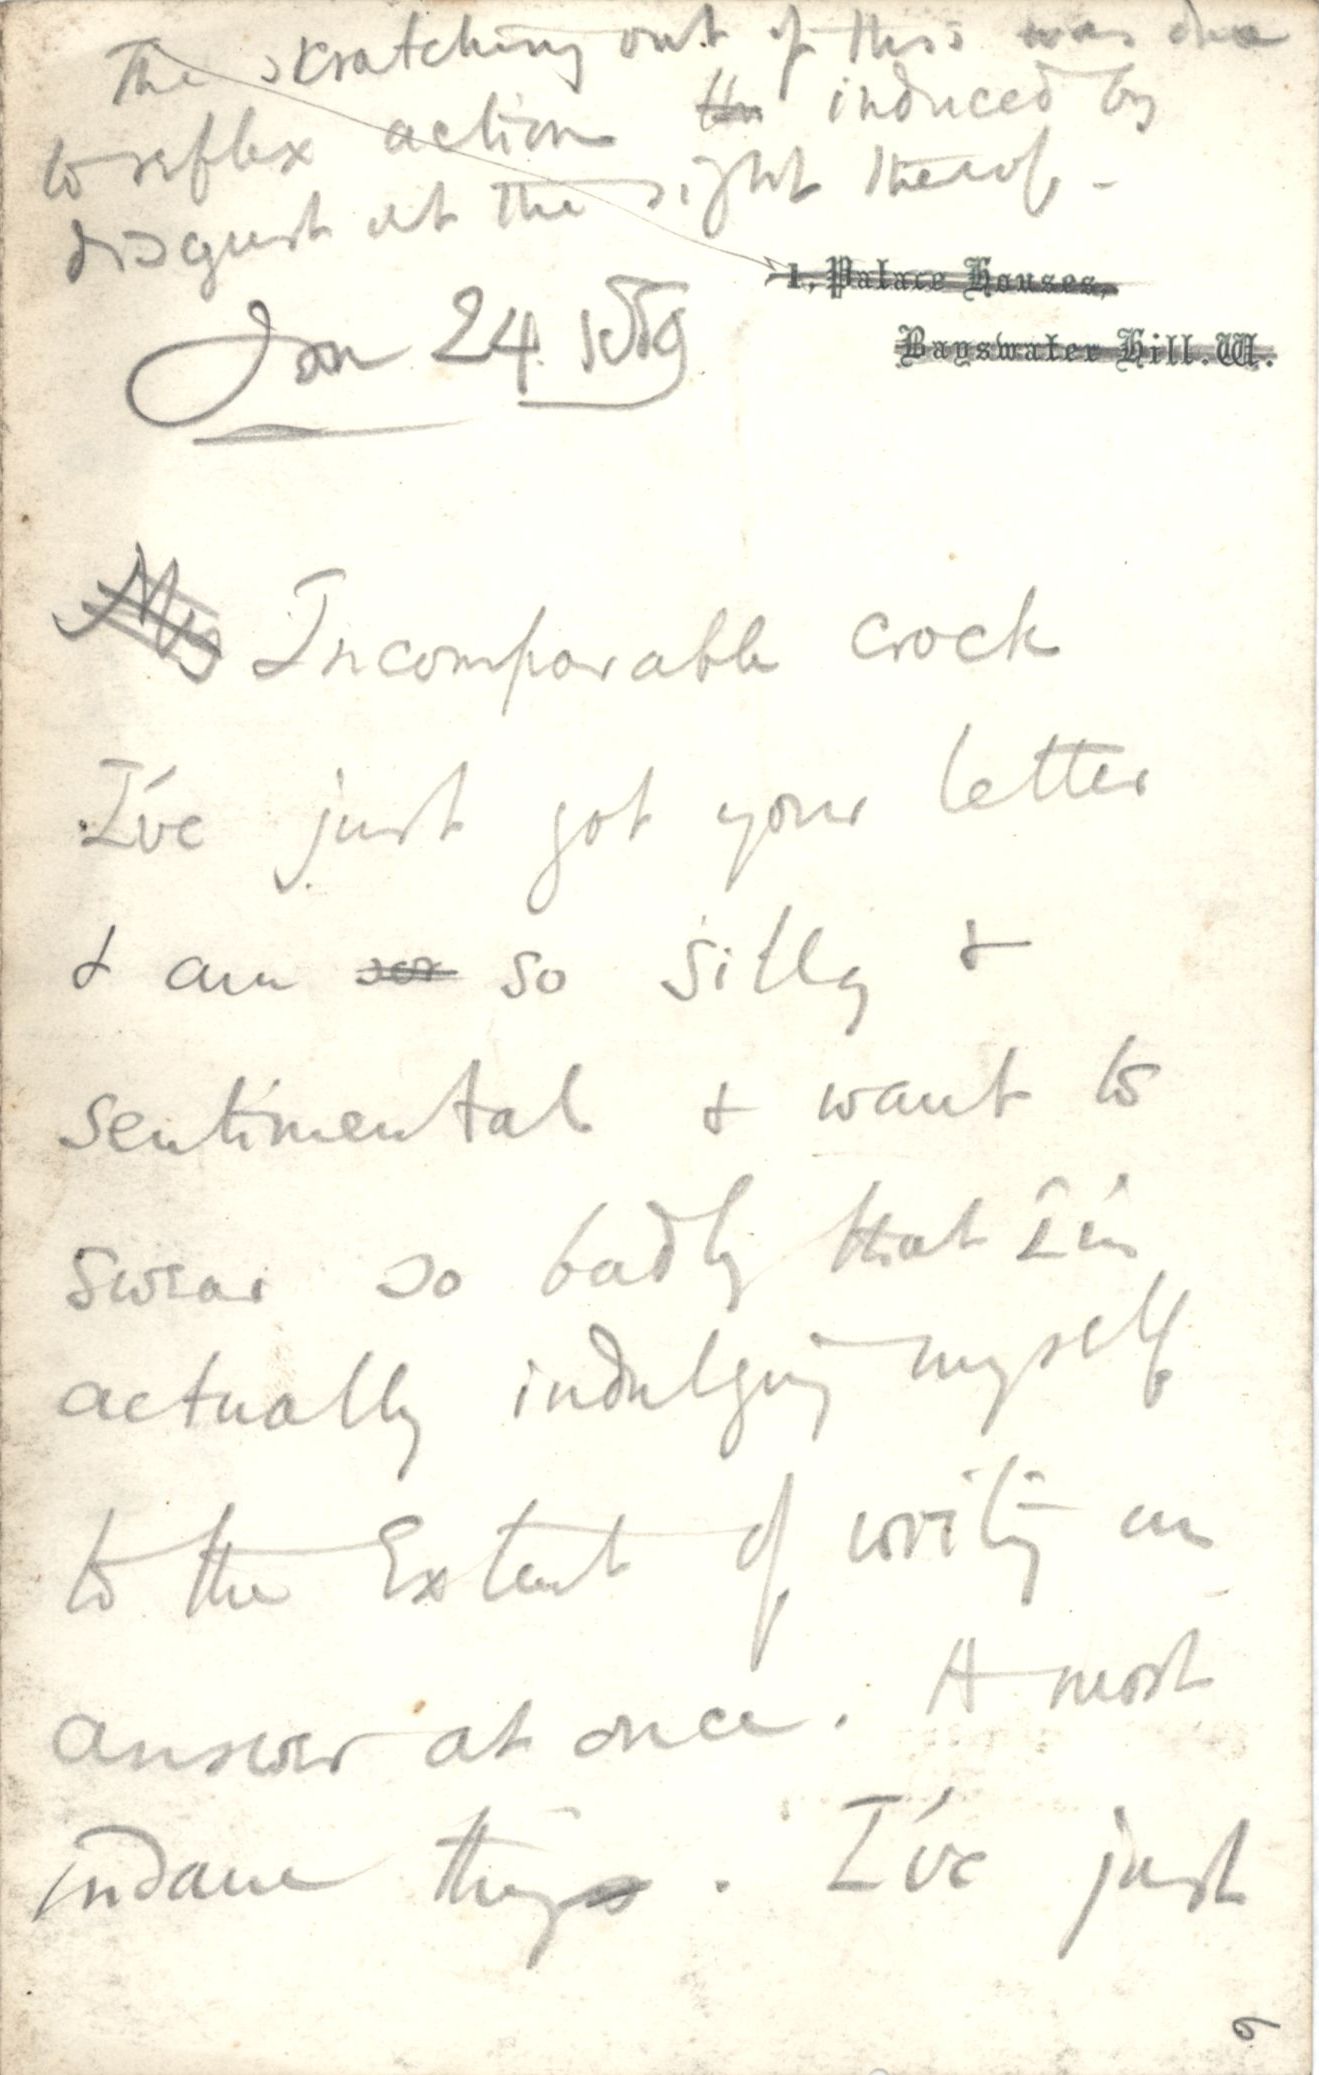 The skratching out of this was due
to reflex action the induced by
disgust at the sight thereof -
1, Palace Houses,
Bayswater Hill. W.
Jan 24 1889
My Incomparable crock
I've just got your letter
& am so so silly &
sentimental & want to
swear so badly that I'm
actually indulging myself
to the Extent of writing an
answer at once. A most
insane thing. I've just